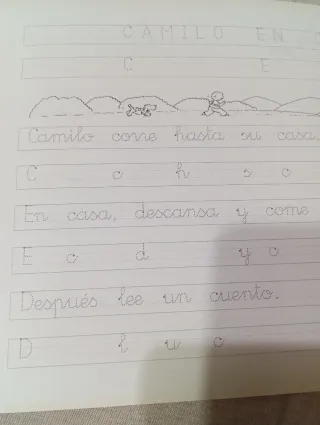 CAMILO EN
C E
Camilo corre hasta su casa.
C c h s c
En casa, descansa y come
E c d y c
Después lee un cuento.
D l u c